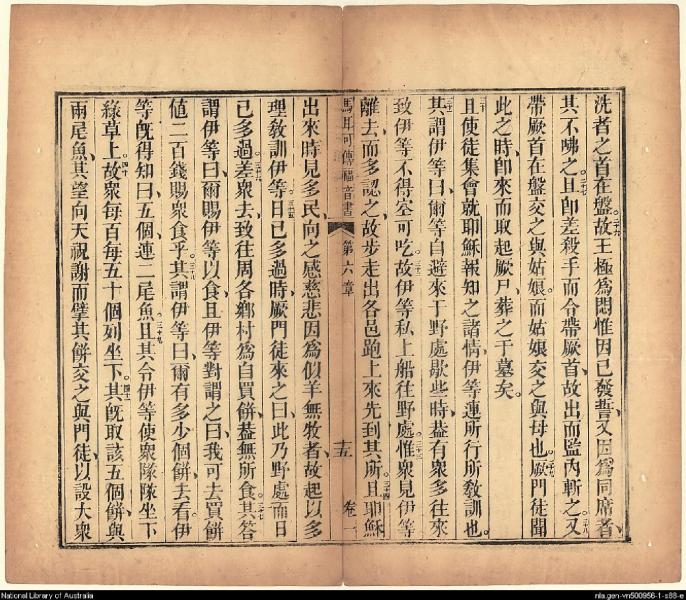 洗者之首在盤。二十六故王極為悶惟因已發誓又因為同席者
其不咈之。二十七且卽差殺手而令帶厥首。故出而監內斬之。二十八又
帶厥首在盤交之與姑娘而姑娘交之與母也。二十九厥門徒聞
此之時卽來而取起厥尸葬之于墓矣。
三十且使徒集會就耶穌報知之諸情伊等連所行所敎訓也。
三十一其謂伊等曰爾等自避來于野處歇些時葢有衆多往來
致伊等不得空可吃。三十二故伊等私上船往野處。三十三惟衆見伊等
離去而多認之故步走出各邑跑上來先到其所。三十四且耶穌
馬耳可傳福音書 第六章 十五 卷二
出來時見多民向之感慈悲因為似羊無牧者故起以多
理敎訓伊等。三十五日已多過時厥門徒來之曰此乃野處而日
已多過。三十六差衆去致往周各鄉村為自買餅葢無所食。三十七其答
謂伊等曰爾賜伊等以食且伊等對謂之曰我可去買餅
値二百錢賜衆食乎。三十八其謂伊等曰爾有多少個餅去看伊
等旣得知曰五個連二尾魚。三十九且其令伊等使衆隊隊坐下
綠草上。四十故衆每百每五十個列坐下。四十一其旣取該五個餅與
兩尾魚其望向天祝謝而擘其餅交之與門徒以設大衆
National Library of Australia
nla.gen-vn500956-1-s88-e